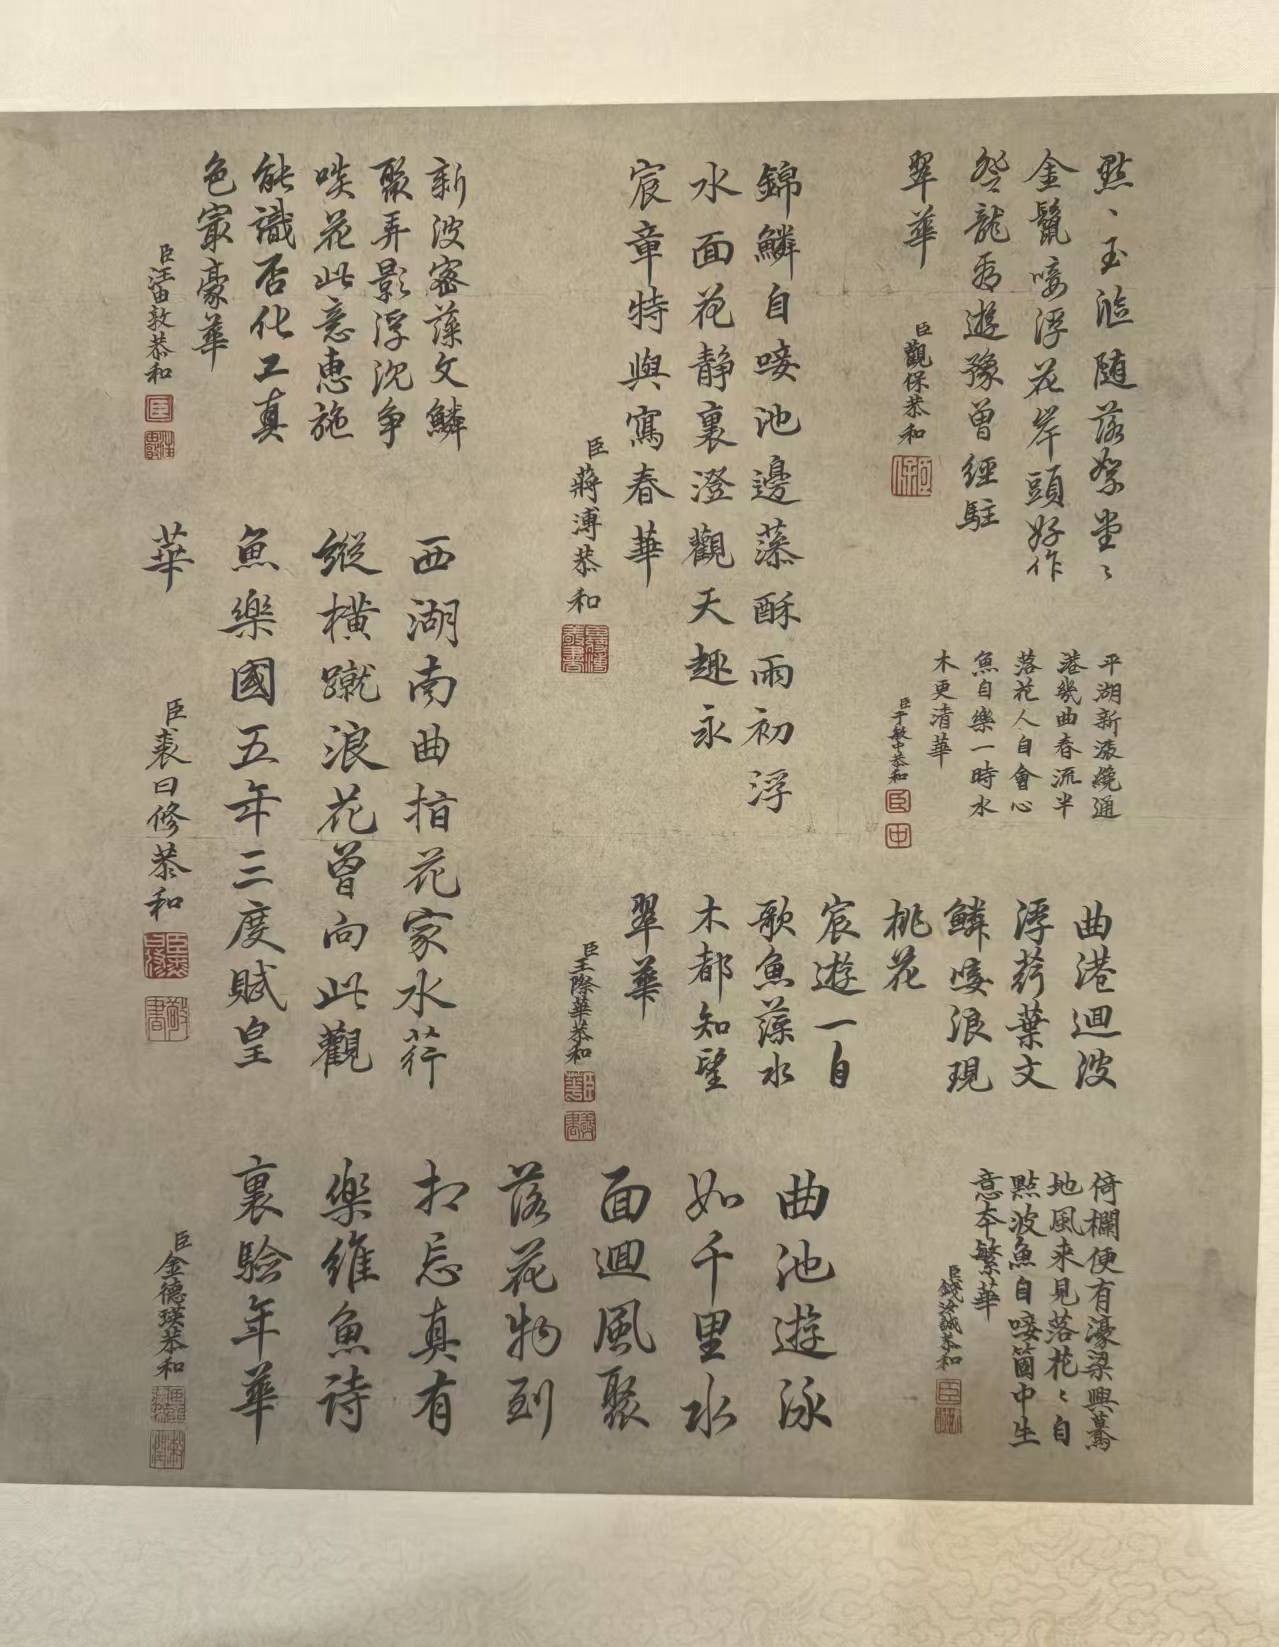 點、玉泒随落絮堂〻
金鬣唼浮花岸頭好作
唘龍看遊豫曾經駐
翠華
臣觀保恭和
平湖新漲繞通
港幾曲春流半
落花人自會心
魚自樂一時水
木更清華
臣于敏中恭和
曲港迴波
浮荇葉文
鱗唼浪現
桃花
宸遊一自
歌魚藻水
木都知望
翠華
臣王際華恭和
倚欄便有濠梁興驀
地風来見落花〻自
點波魚自唼箇中生
意本繁華
臣錢汝誠恭和
錦鱗自唼池邊藻酥雨初浮
水面花静裏澄觀天趣永
宸章特與寫春華
臣蔣溥恭和
曲池遊泳
如千里水
面迴風聚
落花物到
相忘真有
樂維魚詩
裏驗年華
臣金德瑛恭和
新波密藻文鱗
聚弄影浮沉争
唼花此意惠施
能識否化工真
色寂豪華
臣汪由敦恭和
西湖南曲指花家水荇
縱横蹴浪花曾向此觀
魚樂國五年三度賦皇
華
臣裘曰修恭和